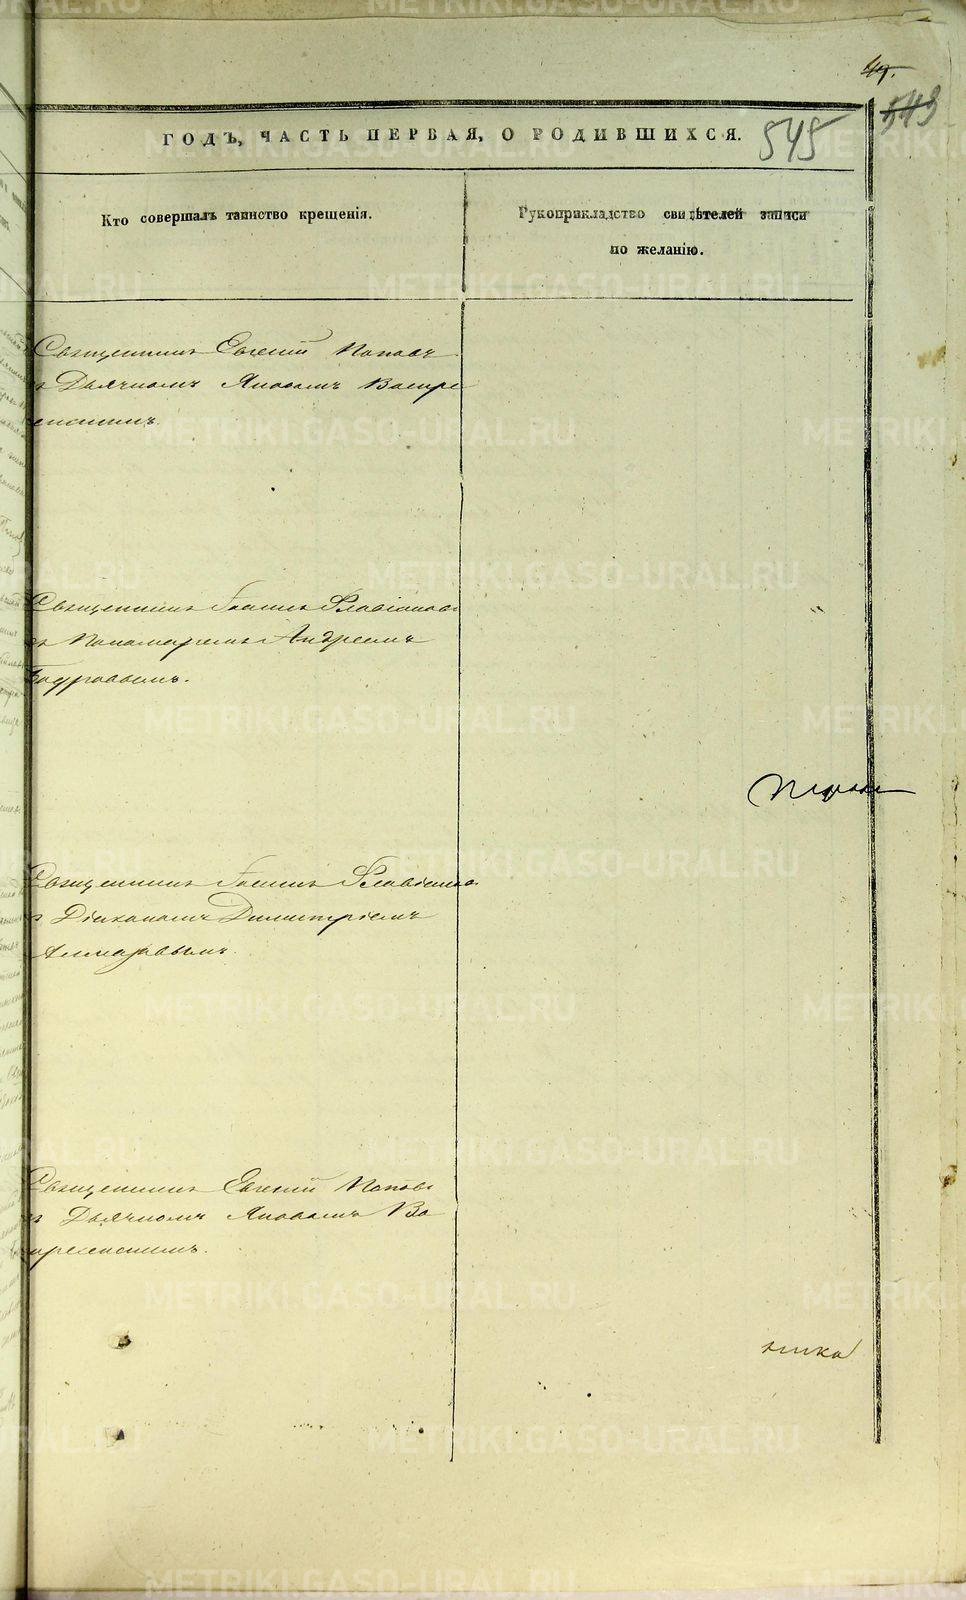 49.
543
545
ГОДЪ, ЧАСТЬ ПЕРВАЯ, О РОДИВШИХСЯ.
Кто совершалъ таинство крещенія.
Рукоприкладство свидѣтелей записи
по желанію.
Священникъ Евгеній Поповъ
съ Дьячкомъ Яковомъ Воскре
сенскимъ.
Священникъ Іоаннъ
съ Пономаремъ Андреемъ
Священникъ Іоаннъ
съ Діакономъ Димитріемъ
Алмазовымъ.
Священникъ Евгеній Поповъ
съ Дьячкомъ Яковомъ Во
скресенскимъ.
METRIKI.GASO-URAL.RU